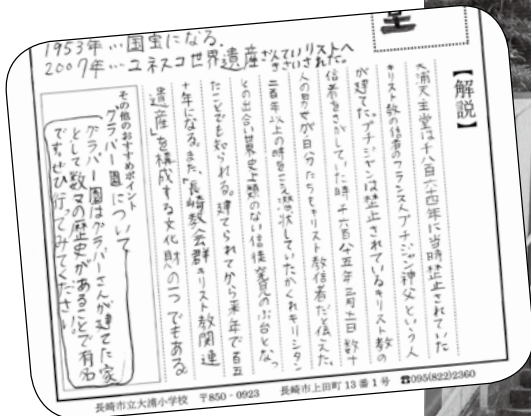 堂
1953年…国宝になる.
2007年…ユネスコ世界遺産ざんていリストへ
【解説】
大浦天主堂は千八百六十四年に当時禁止されていた
キリスト教の信者のフランス人プチジャン神父という人
が建てた。プチジャンは禁止されているキリスト教の
信者をさがしていた時、千八百六十五年三月十二日、数十
人の男女が自分たちもキリスト教信者だと伝えた。
二百年以上の時をこえ潜伏していたかくれキリシタン
との出合い世界史上類のない信徒発見のぶ台となっ
たことでも知られる。建てられてから来年で百五
十年になる。また、「長崎教会群キリスト教関連
遺産」を構成する文化財の一つでもある。
その他のおすすめポイント
グラバー園について
グラバー園はグラバーさんが建てた家
として数々の歴史があることで有名
です。ぜひ行ってみてください。
長崎市立大浦小学校 〒850‐0923 長崎市上田町13番1号 ☎095(822)2360